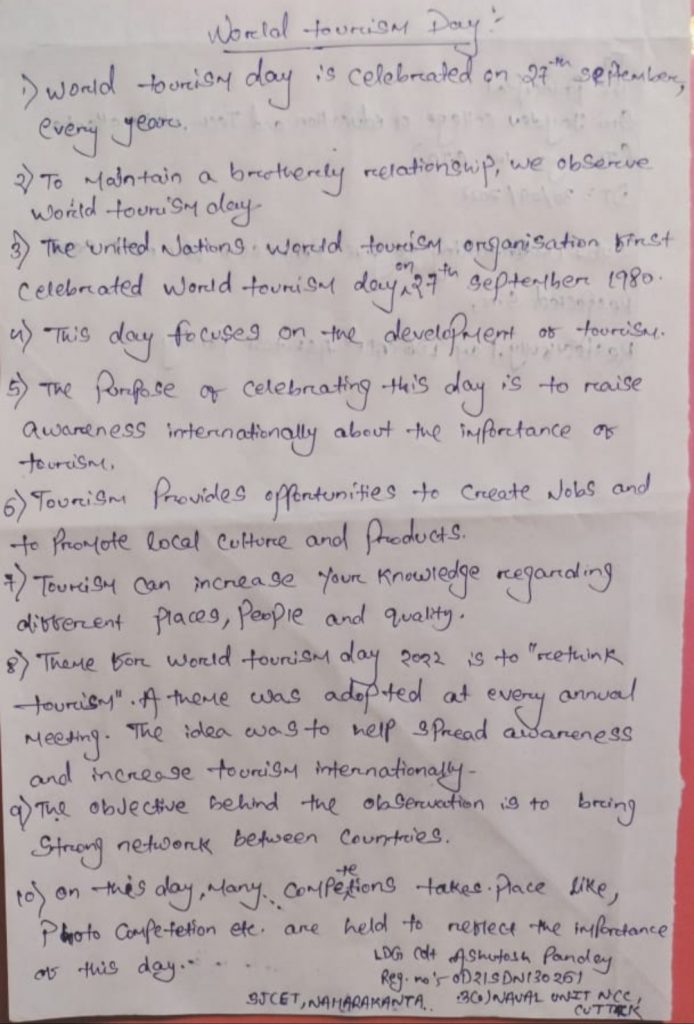 World tourism Day :-
1) World tourism day is celebrated on 27th september,
every years.
2) To Maintain a brotherly relationship, we observe
World tourism day.
3) The united Nations. World tourism organisation first
celebrated World tourism day on 27th september 1980.
4) This day focuses on the development of tourism.
5) The Purpose of celebrating this day is to raise
awareness internationally about the importance of
tourism.
6) Tourism Provides opportunities to create Jobs and
to Promote local culture and Products.
7) Tourism can increase your knowledge regarding
different Places, People and quality.
8) Theme for World tourism day 2022 is to "rethink
tourism". A theme was adopted at every annual
Meeting. The idea was to help spread awareness
and increase tourism internationally-
9) The objective behind the observation is to bring
Strong network between Countries.
10) on this day, Many.. Competetions takes. Place like,
Photo Competetion etc. are held to reflect the importance
of this day.. . .
LDG Cdt Ashutosh Pandey
Reg. no:- OD21SDN130261
SJCET, NAHARAKANTA.. 3(O) NAVAL UNIT NCC,
CUTTACK